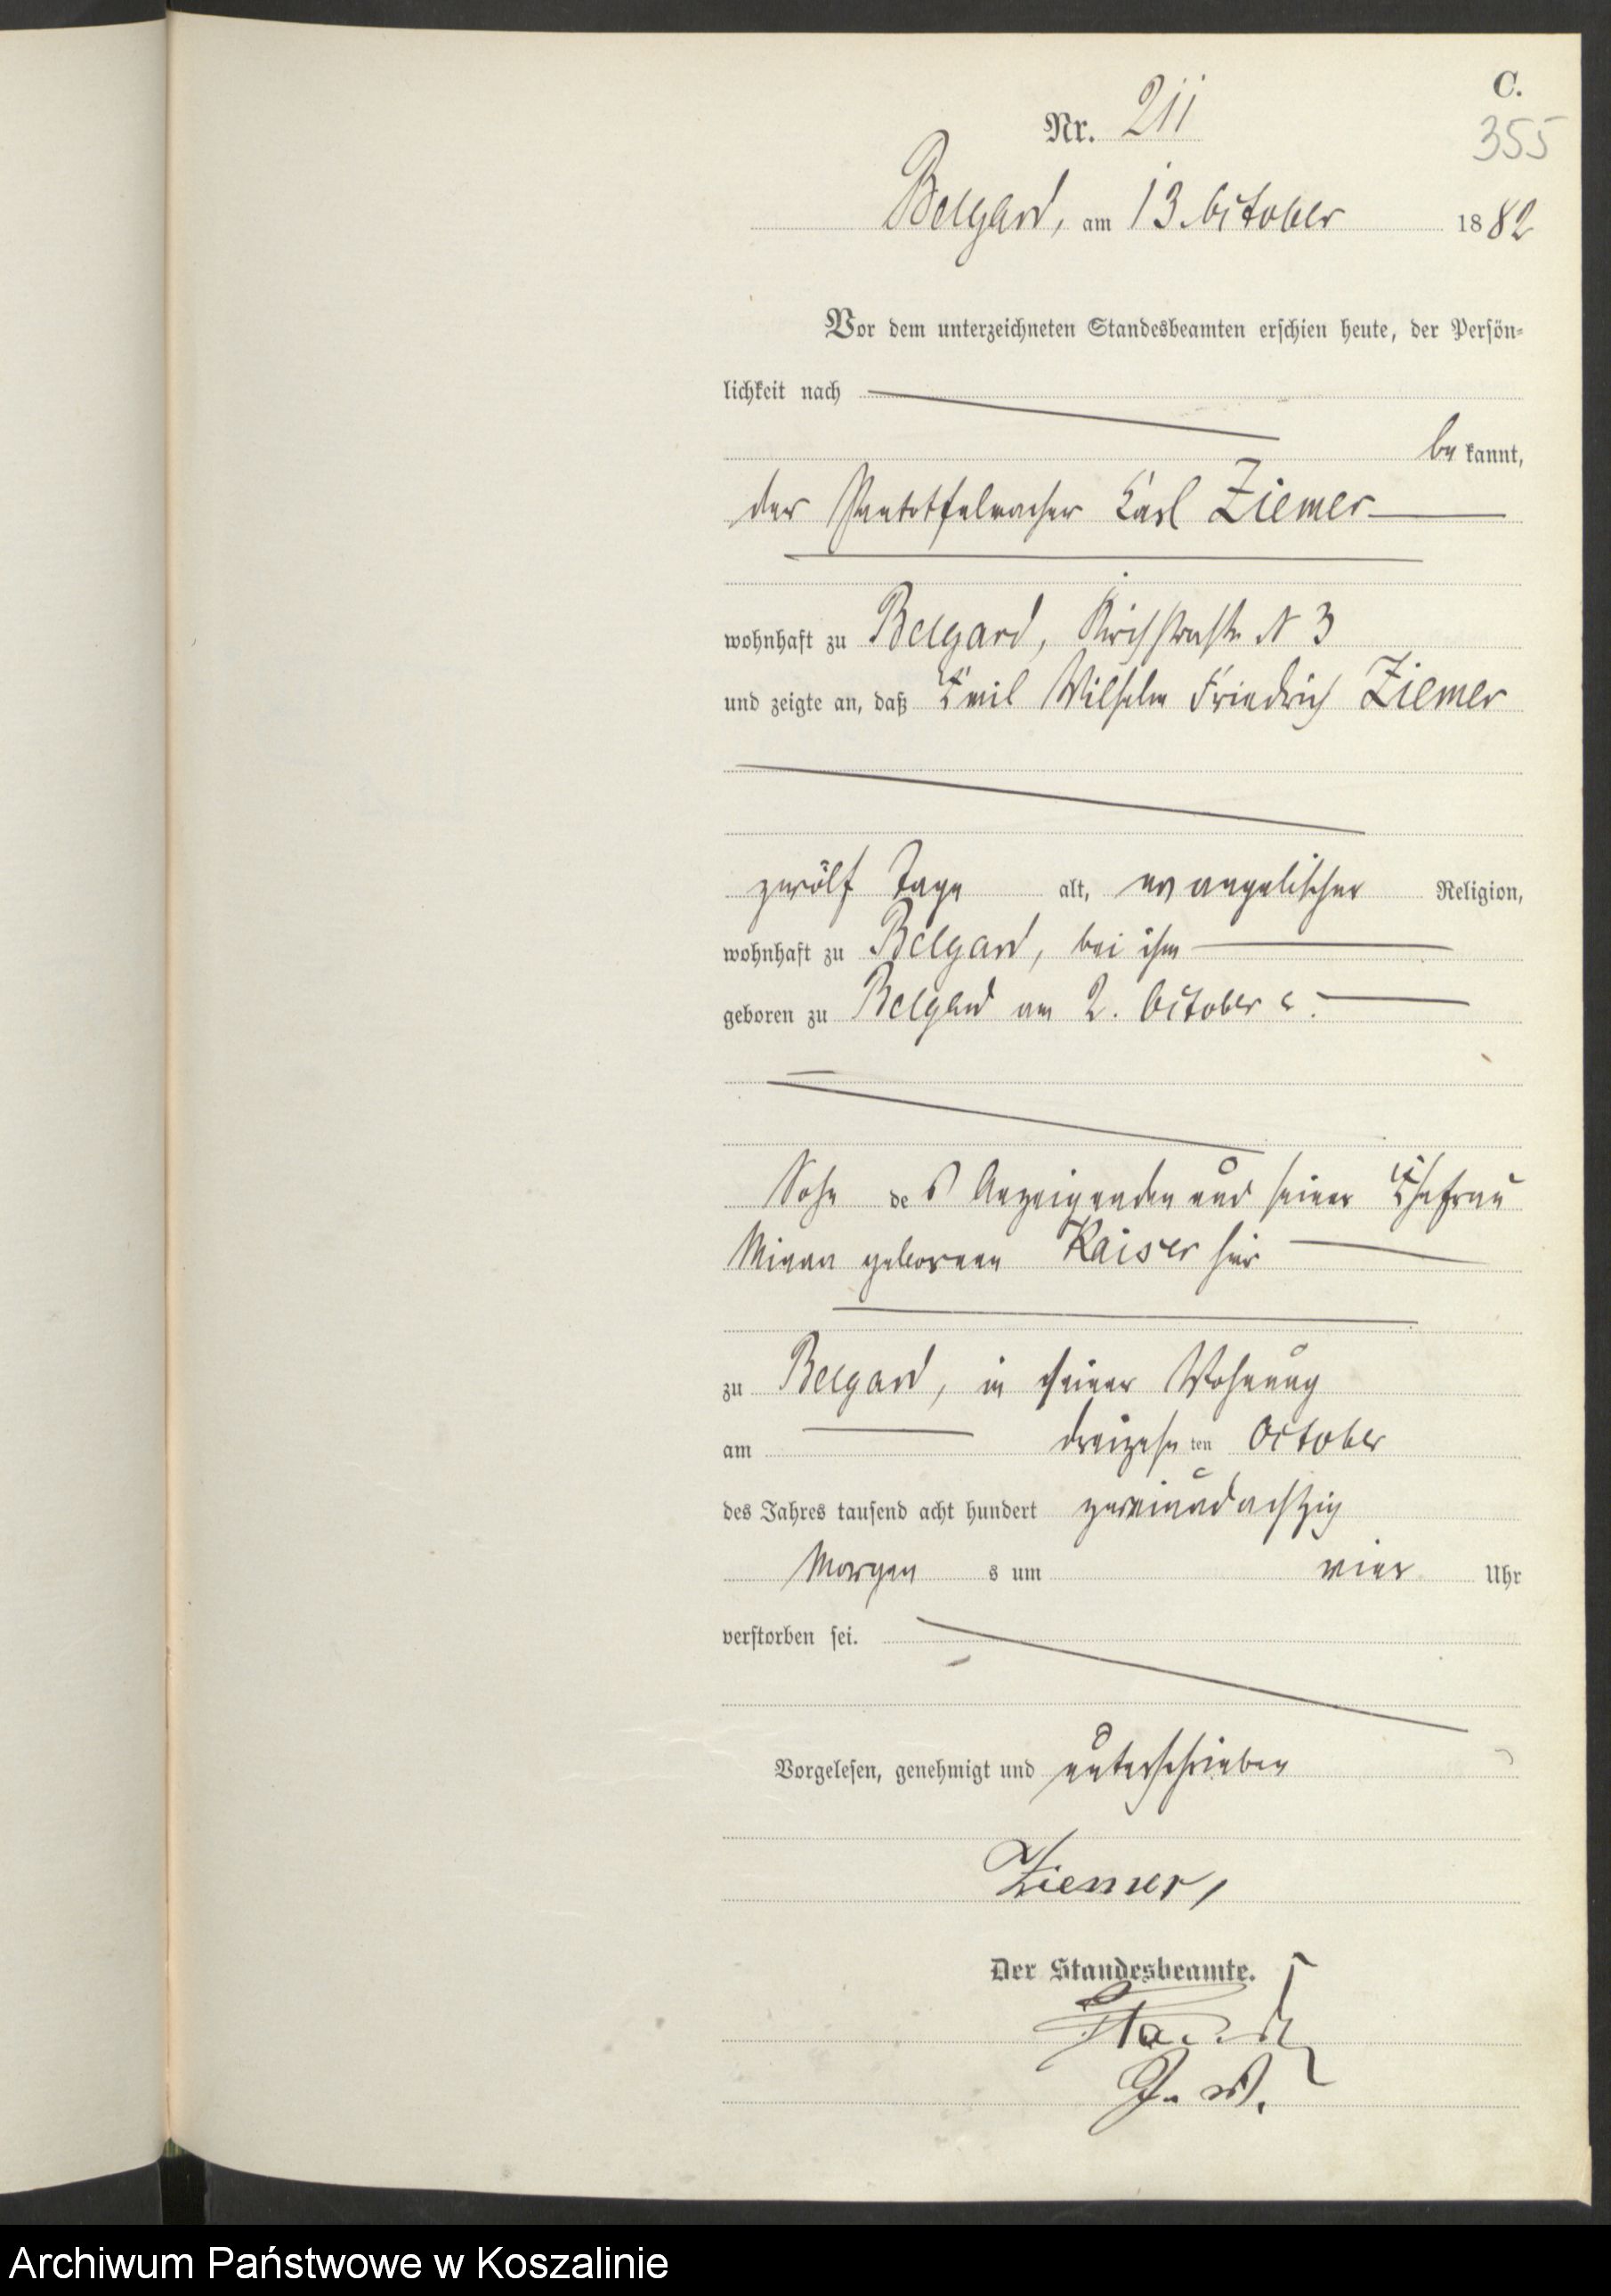 C.
Nr. 211
355
Belgard, am 13 October 1882
Vor dem unterzeichneten Standesbeamten erschien heute, der Persön-
lichkeit nach
bekannt,
der Pantoffelmacher Carl Ziemer
wohnhaft zu Belgard, Kirchstraße N 3
und zeigte an, daß Emil Wilhelm Friedrich Ziemer
zwölf Tage alt, evangelischer Religion,
wohnhaft zu Belgard, bei ihm
geboren zu Belgard am 2. October c.
Sohn des Anzeigenden und seiner Ehefrau
Minna geborene Kaiser hier
zu Belgard, in seiner Wohnung
am dreizehnten October
des Jahres tausend acht hundert zweiundachtzig
Morgens um vier Uhr
verstorben sei.
Vorgelesen, genehmigt und unterschrieben
Ziemer,
Der Standesbeamte.
J. V.
Archiwum Państwowe w Koszalinie